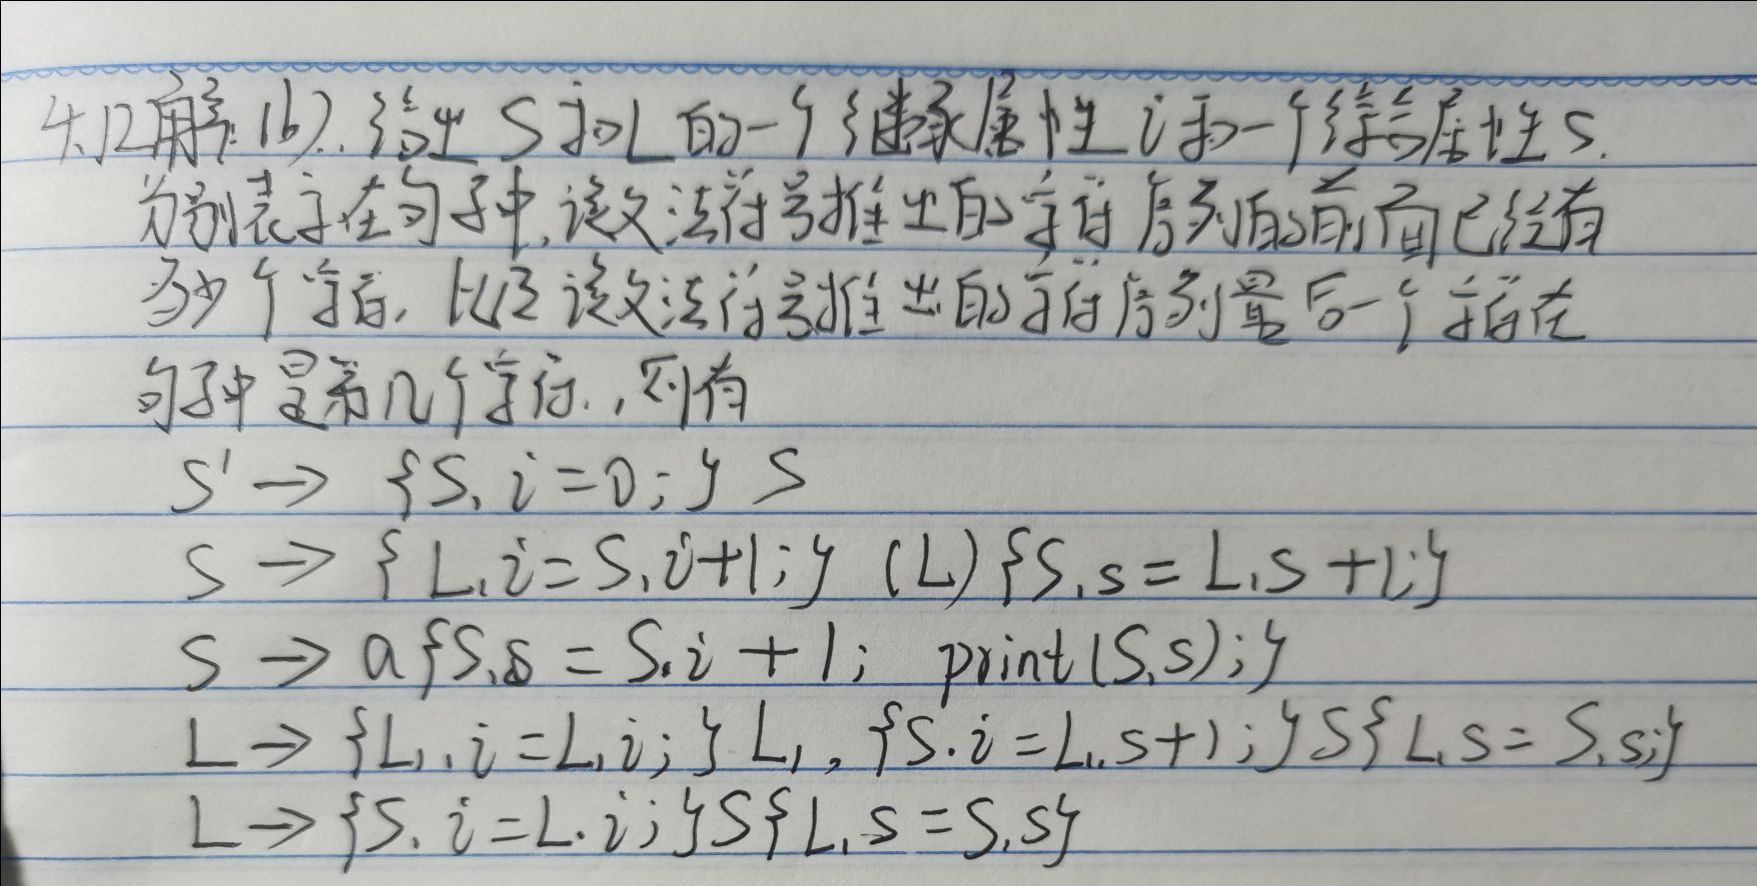 4.12解:(b).给出S和L的一个继承属性i和一个综合属性s.
分别表示在句子中,该文法符号推出的字符序列的前面已经有
多少个字符,以及该文法符号推出的字符序列最后一个字符在
句子中是第几个字符.,则有
S' → {S.i=0;} S
S → {L.i=S.i+1;} (L){S.s=L.s+1;}
S → a{S.s=S.i+1; print(S.s);}
L → {L₁.i=L.i;} L₁,{S.i=L₁.s+1;}S{L.s=S.s;}
L → {S.i=L.i;}S{L.s=S.s}